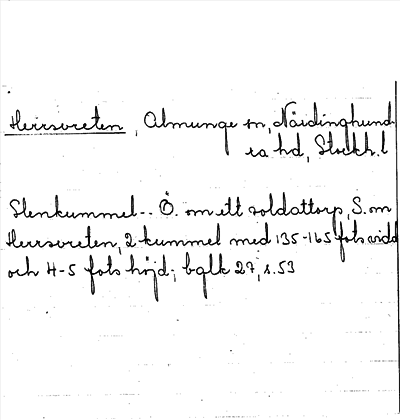 Herrsvreten, Almunge sn, Närdinghund-
ra hd, Stockh. l
Stenkummel -- Ö. om ett soldattorp, S. om
Herrsvreten, 2 kummel med 135-165 fots vidd
och 4-5 fots höjd; bglk 27, s. 53